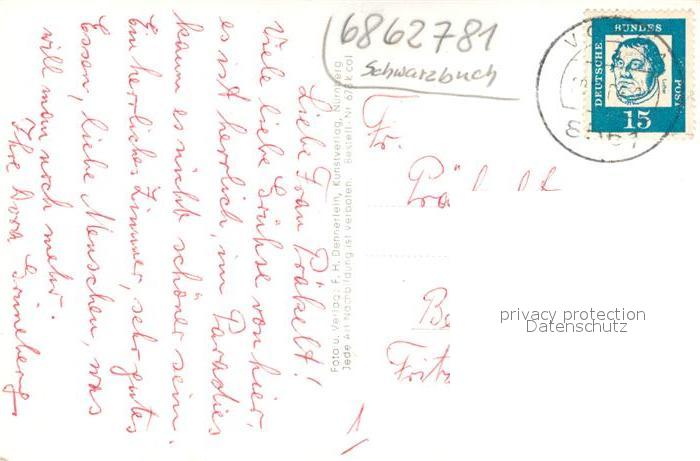 Liebe Frau Präkelt!
Viele liebe Grüsse von hier,
es ist herrlich, im Paradies
kann es nicht schöner sein.
Ein herrliches Zimmer, sehr gutes
Essen, liebe Menschen, was
will man noch mehr.
Ihre Dora Grüneberg.
Foto u. Verlag: F. H. Dennerlein, Kunstverlag, Nürnberg
Jede Art Nachbildung ist verboten. Bestell. Nr.
6862781
Schwarzbuch
DEUTSCHE BUNDES POST
Luther
15
Fr.
Prä
Be
Fritz
privacy protection
Datenschutz